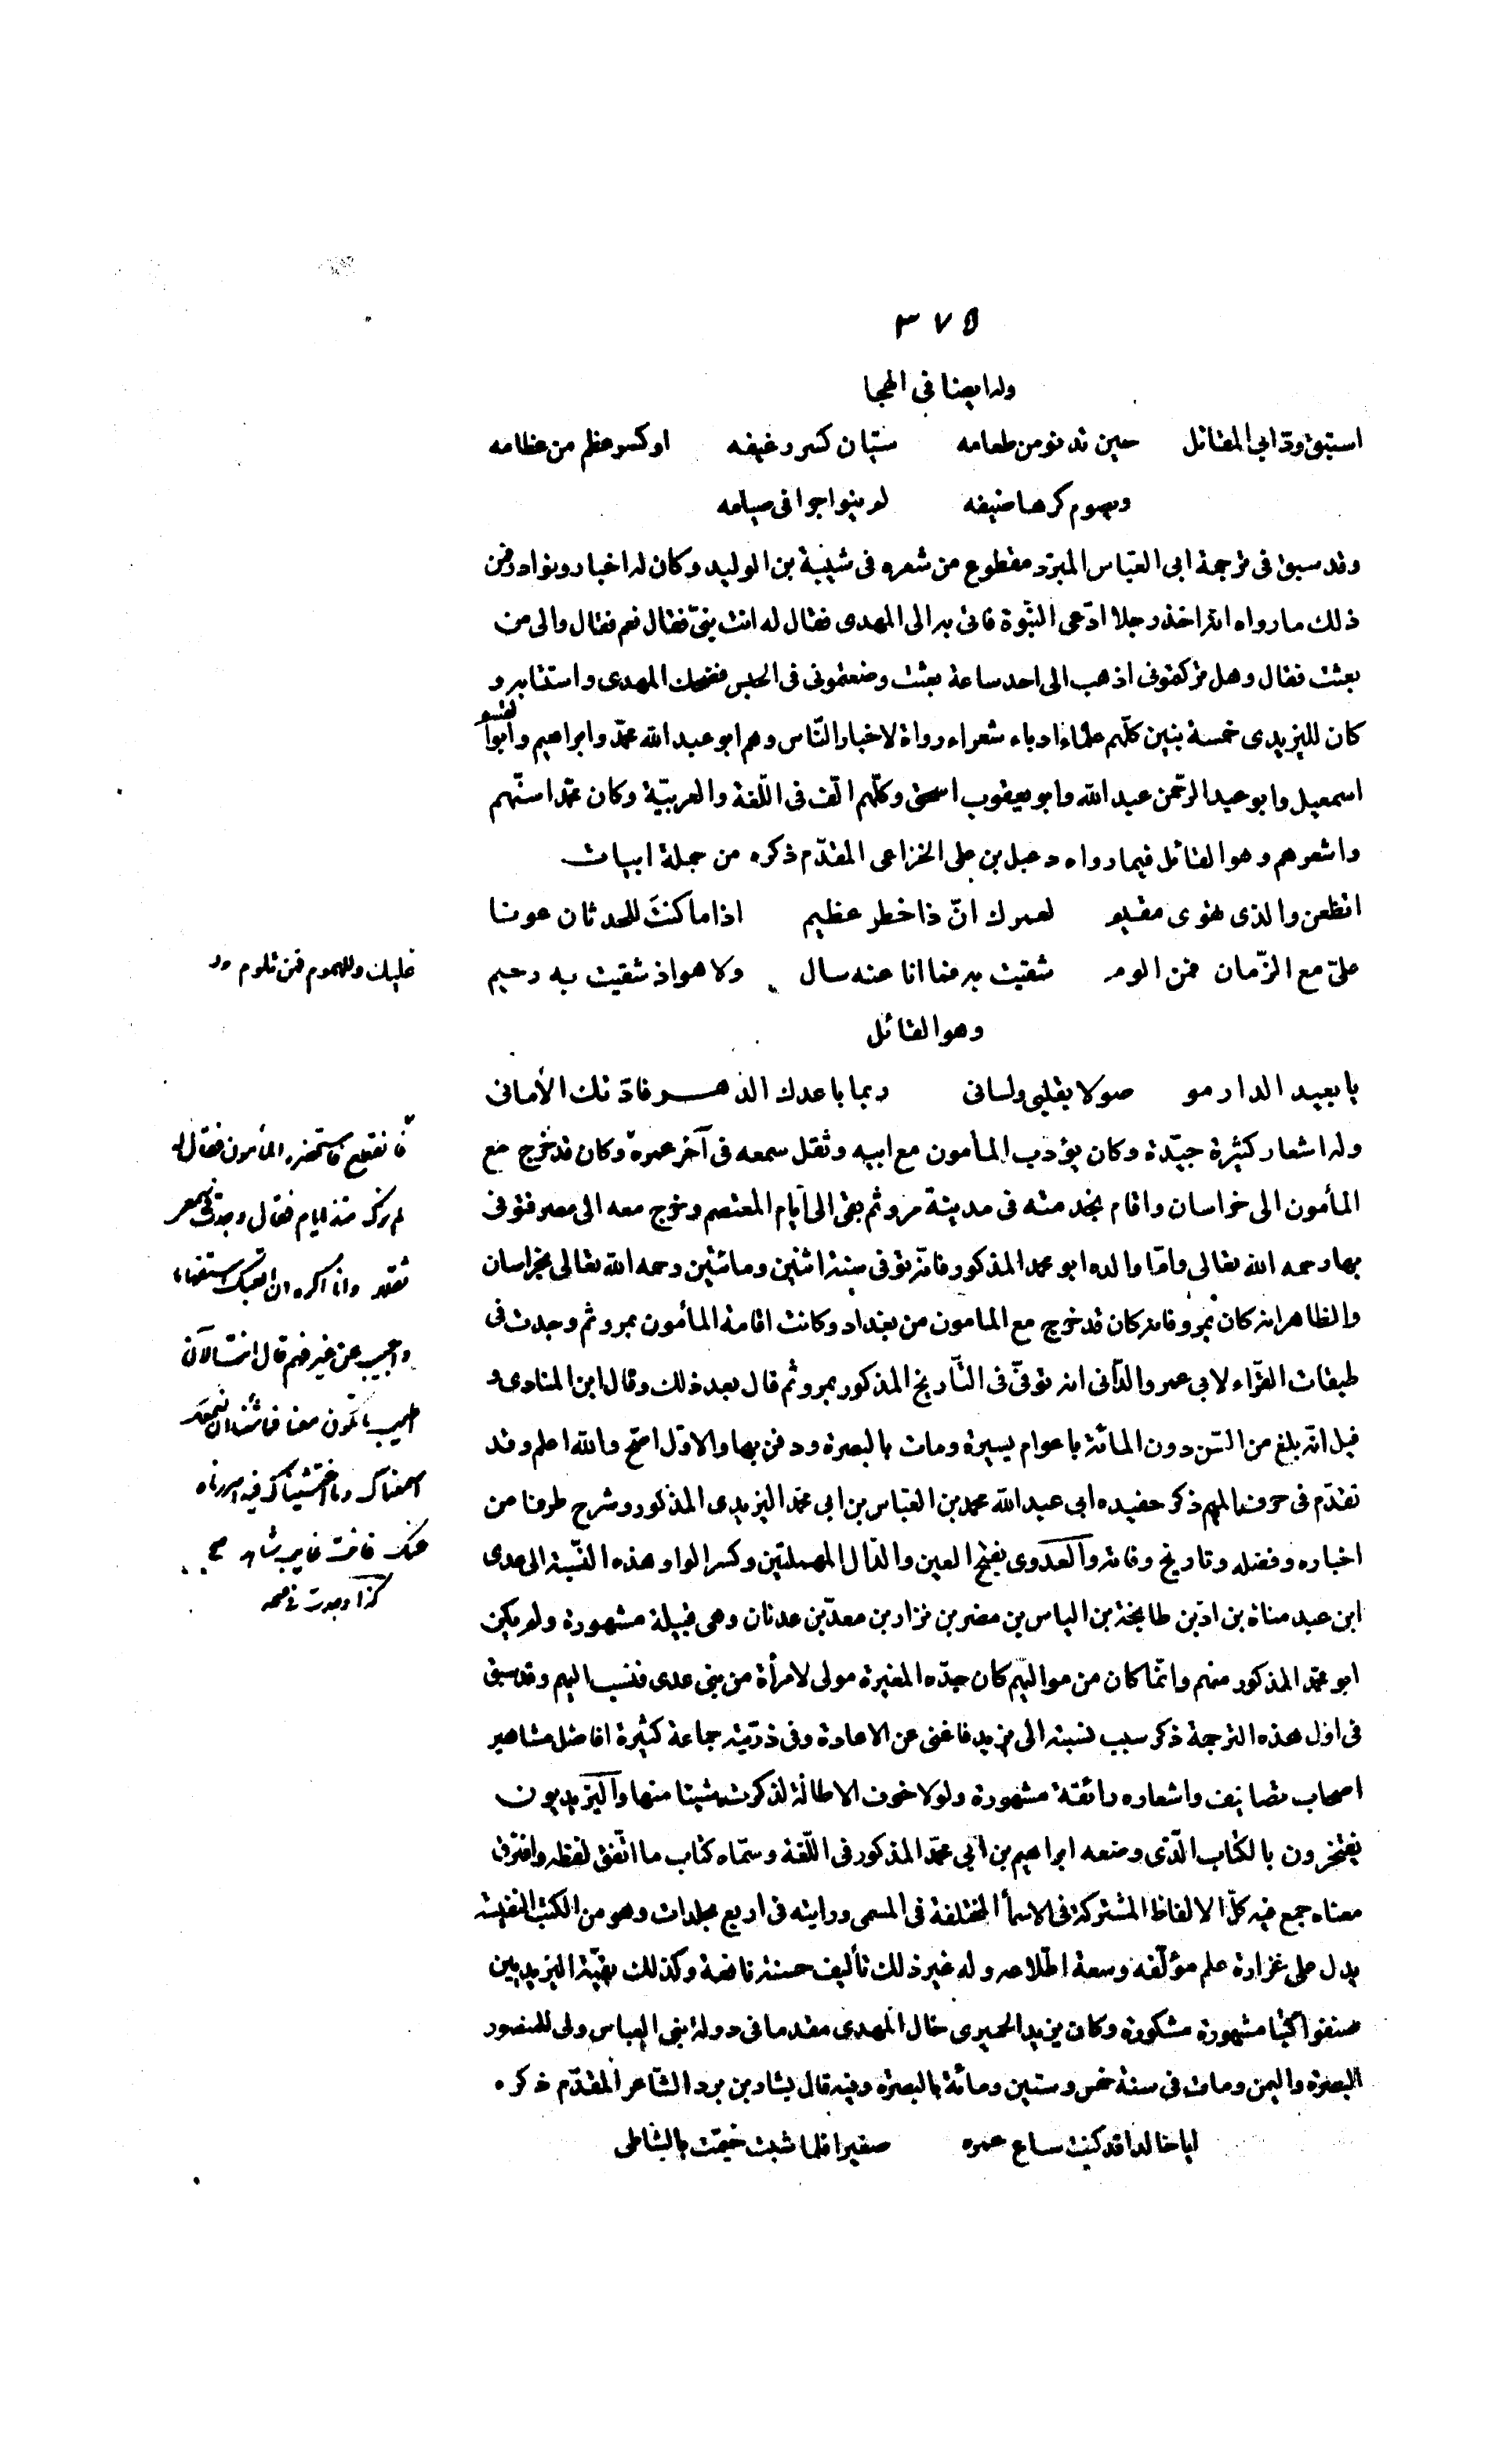 ٣٧٥
وله ايضا في الهجا
استبق ود ابي المقاتل حين تدنو من طعامه سيّان كسر رغيفه او كسر عظم من عظامه
ويصوم كرها ضيفه لم ينو اجرا في صيامه
وقد سبق في ترجمة ابي العبّاس المبرّد مقطوع من شعره في شيبة بن الوليد وكان له اخبار ونوادر فمن
ذلك ما رواه انه اخذ رجلا ادّعى النبّوة فاتى به الى المهدى فقال له انت نبيّ فقال نعم فقال والى من
بعثت فقال وهل تركتموني اذهب الى احد ساعة بعثت وضعتموني في الحبس فضحك المهدى واستتابه و
كان لليزيدى خمسة بنين كلّهم علماء ادباء شعراء رواة لاخبار النّاس وهم ابو عبد الله محمّد وابراهيم وابو القسم
اسمعيل وابو عبد الرّحمن عبد الله وابو يعقوب اسحق وكلّهم الّف في اللّغة والعربيّة وكان محمّد اسنّهم
واشعرهم وهو القائل فيما رواه دعبل بن على الخزاعى المقدّم ذكره من جملة ابيات
اتظعن والذى تهوى مقيم لعمرك انّ ذا خطر عظيم اذا ما كنتَ للحدثان عونا
علىّ مع الزّمان فمن الوم شقيت به فما انا عنه سال ولا هو اذ شقيت به رحيم
عليك وللهموم فمن تلوم
وهو القائل
يا بعيد الدار موصولا بقلبي ولساني ربما باعدك الدهر فادنتك الأماني
وله اشعار كثيرة جيّدة وكان يؤدب المأمون مع ابيه وثقل سمعه في آخر عمره وكان قد خرج مع
المأمون الى خراسان واقام بخدمته في مدينة مرو ثم بقى الى ايّام المعتصم وخرج معه الى مصر فتوفى
بها رحمه الله تعالى وامّا والده ابو محمد المذكور فانّه توفى سنة اثنين ومائتين رحمه الله تعالى بخراسان
والظاهر انه كان بمرو فانه كان قد خرج مع المامون من بغداد وكانت اقامة المأمون بمرو ثم وجدت في
طبقات القرّاء لابى عمرو الدّانى انه توفّى في التّاريخ المذكور بمرو ثم قال بعد ذلك وقال ابن المنادى و
قيل انّه بلغ من السّن دون المائة باعوام يسيرة ومات بالبصرة ودفن بها والاوّل اصحّ والله اعلم وقد
تقدّم في حرف الميم ذكر حفيده ابى عبد الله محمد بن العبّاس بن ابى محمّد اليزيدى المذكور وشرح طرفا من
اخباره وفضله وتاريخ وفاته والعدوى بفتح العين والدّال المهملتين وكسر الواو هذه النّسبة الى عدى
ابن عبد مناة بن ادّ بن طابخة بن الياس بن مضر بن نزار بن معدّ بن عدنان وهى قبيلة مشهورة ولم يكن
ابو محمّد المذكور منهم وانّما كان من مواليهم كان جدّه المغيرة مولى لامرأة من بنى عدى فنسب اليهم وقد سبق
في اوّل هذه الترجمة ذكر سبب نسبته الى يزيد فاغنى عن الاعادة وفى ذرّيته جماعة كثيرة افاضل مشاهير
اصحاب تصانيف واشعاره رائقة مشهورة ولولا خوف الاطالة لذكرت شيئا منها واليزيديون
يفتخرون بالكتاب الّذى وضعه ابراهيم بن ابى محمّد المذكور في اللّغة وسمّاه كتاب ما اتّفق لفظه وافترق
معناه جمع فيه كلّ الالفاظ المشتركة في الاسمأ المختلفة في المسمى ورايته في اربع مجلدات وهو من الكتب النفيسة
يدل على غزارة علم مؤلّفه وسعة اطّلاعه وله غير ذلك تأليف حسنة نافعة وكذلك بقيّة اليزيديين
صنفوا كتبا مشهورة مشكورة وكان يزيد الحميرى خال المهدى مقدما في دولة بنى العباس ولى للمنصور
البصرة واليمن ومات في سنة خمس وستين ومائة بالبصرة وفيه قال بشار بن برد الشّاعر المقدّم ذكره
ابا خالد قد كنت سباح غمره صغيرا فلما شبت خيّمت بالشّاطى
فانقطع فاستحضره المأمون فقال له
لم نرك منذ ايام فقال وجدت في سمعى
ثقلا وانا اكره ان اتعبك استفهاما
واجيب عن غير فهم قال انت الآن
اطيب ما تكون معنا فما شئنا ان نسمعك
اسمعناك وما احتشمناك فيه اسررناه
عنك فانت غايب شاهد صح
كذا وجدت في نسخه